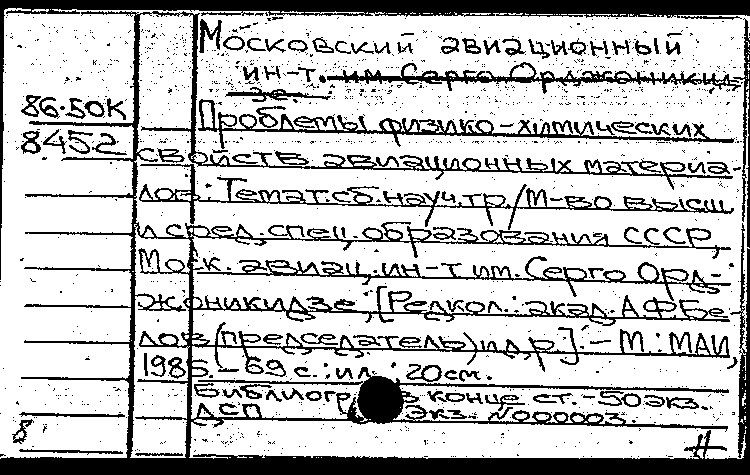 Московский авиационный
ин-т. им. Серго Орджоникид-
зе.
86-50К
Проблемы физико-химических
8452
свойств авиационных материа-
лов: Темат. сб. науч. тр. / М-во высш.
и сред. спец. образования СССР,
Моск. авиац. ин-т им. Серго Орд-
жоникидзе; [Редкол.: акад. А.Ф. Бе-
лов (председатель) и др.]. - М.: МАИ,
1985. - 69 с.: ил.; 20 см.
Библиогр. в конце ст. - 50 экз.
ДСП экз. N000003.
8